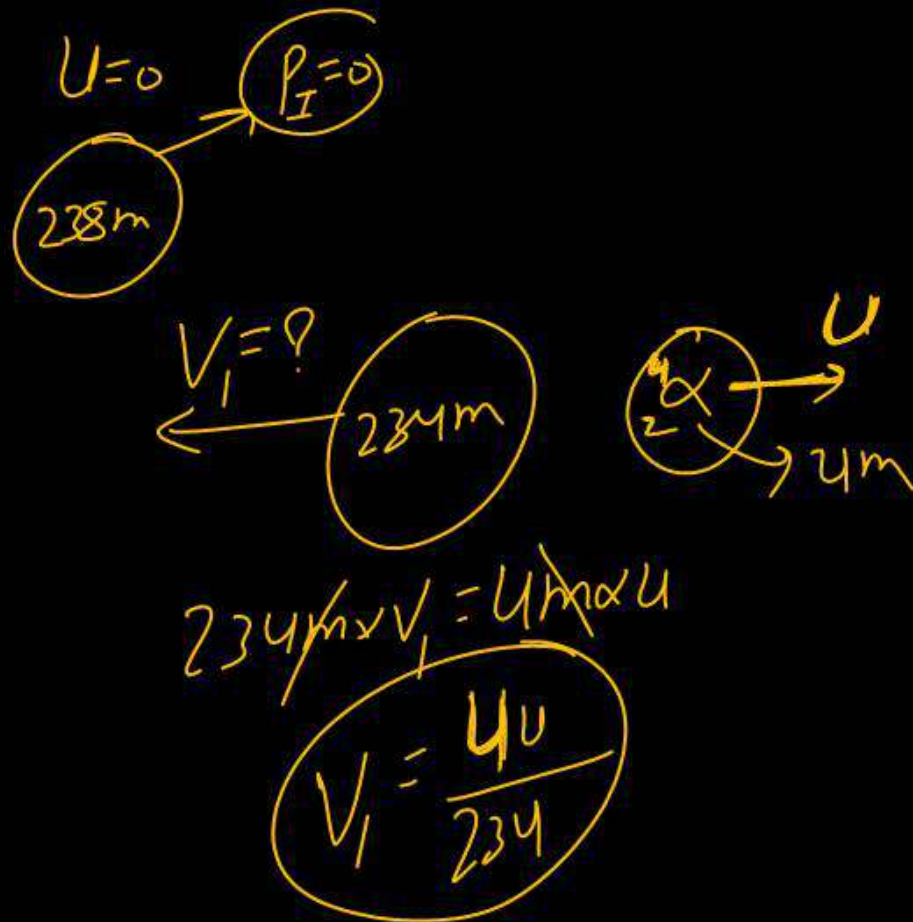 U=0
P_I=0
238m
V₁=?
234m
⁴₂α
U
4m
234m×V₁=4m×u
V₁=4u/234